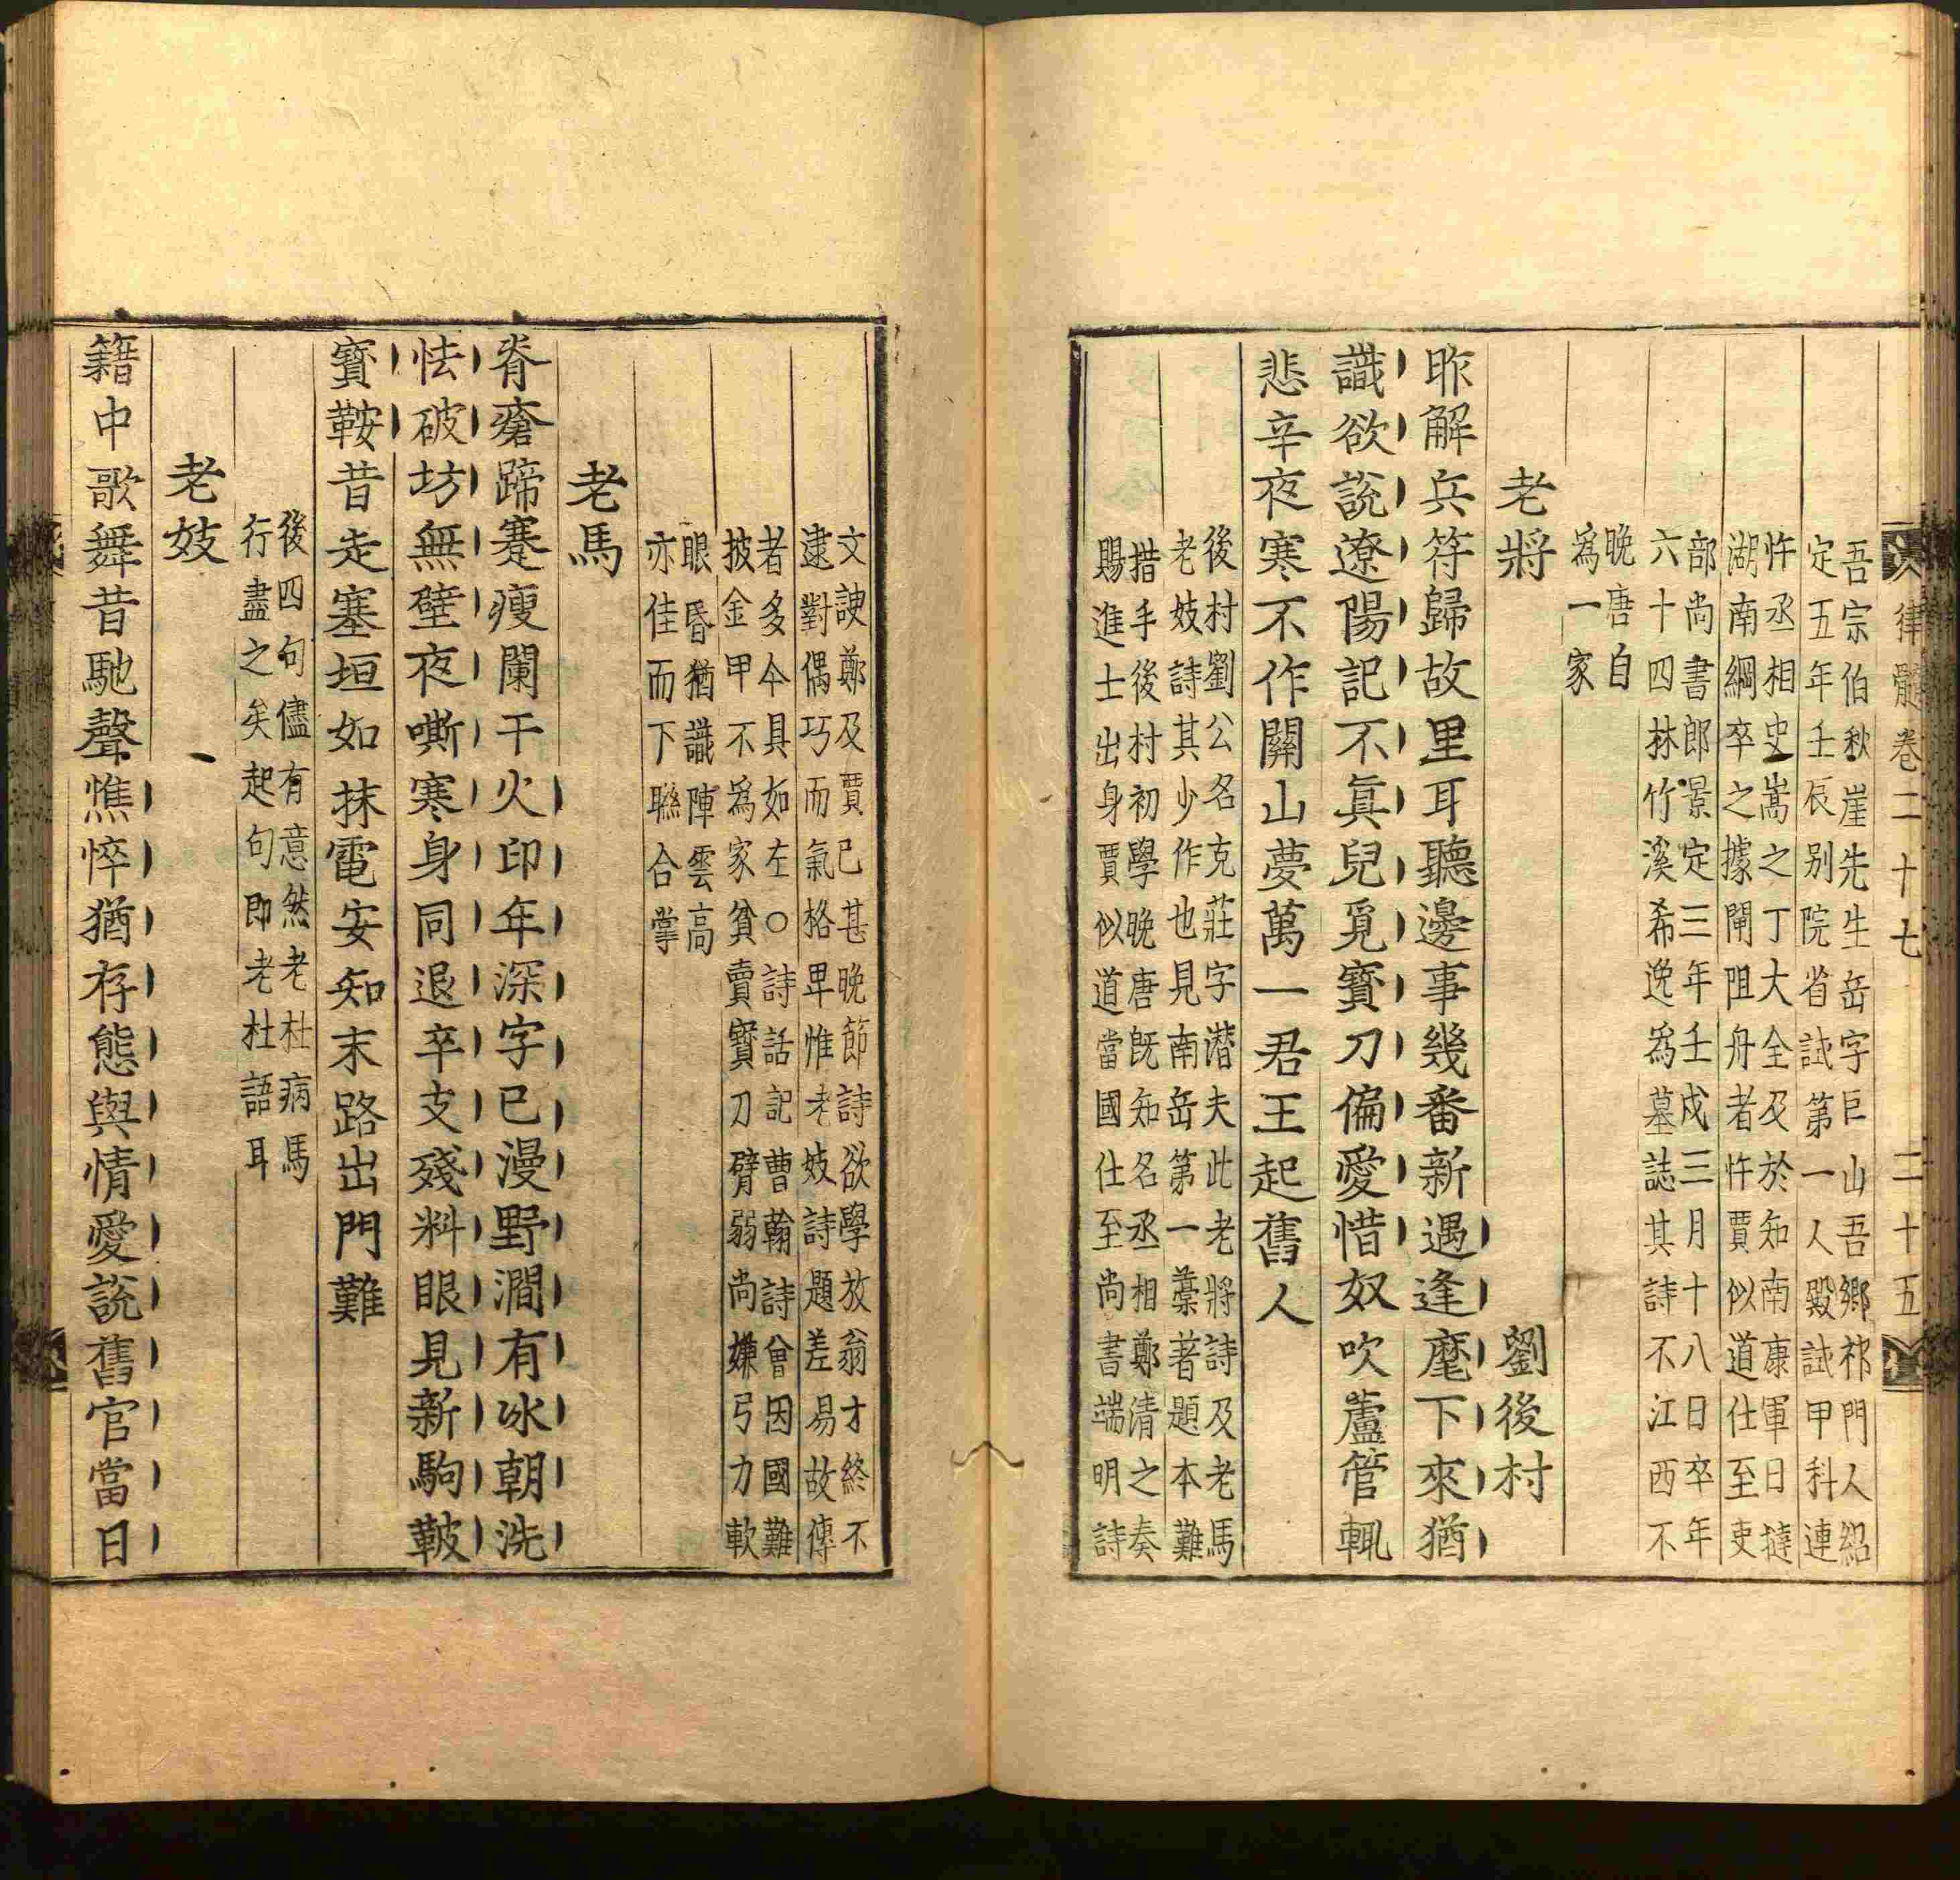 律髓卷二十七　二十五
吾宗伯秋崖先生岳字巨山吾鄉祁門人紹
定五年壬辰別院省試第一人殿試甲科連
忤丞相史嵩之丁大全及於知南康軍日撻
湖南綱卒之據閘阻舟者忤賈似道仕至吏
部尚書郎景定三年壬戌三月十八日卒年
六十四林竹溪希逸爲墓誌其詩不江西不
晚唐自
爲一家
老將　劉後村
昨解兵符歸故里耳聽邊事幾番新遇逢麾下來猶
識欲說遼陽記不眞兒覓寳刀偏愛惜奴吹蘆管輒
悲辛夜寒不作關山夢萬一君王起舊人
後村劉公名克莊字潜夫此老將詩及老馬
老妓詩其少作也見南岳第一藁著題本難
措手後村初學晚唐既知名丞相鄭清之奏
賜進士出身賈似道當國仕至尚書端明詩
文諛鄭及賈已甚晚節詩欲學放翁才終不
逮對偶巧而氣格卑惟老妓詩題差易故傳
者多今具如左○詩話記曹翰詩曾因國難
披金甲不爲家貧賣寳刀臂弱尚嫌弓力軟
眼昏猶識陣雲高
亦佳而下聮合掌
老馬
脊瘡蹄蹇瘦闌干火印年深字已漫野澗有冰朝洗
怯破坊無壁夜嘶寒身同退卒支殘料眼見新駒鞁
寳鞍昔走塞垣如抹電安知末路出門難
後四句儘有意然老杜病馬
行盡之矣起句即老杜語耳
老妓
籍中歌舞昔馳聲憔悴猶存態與情愛說舊官當日